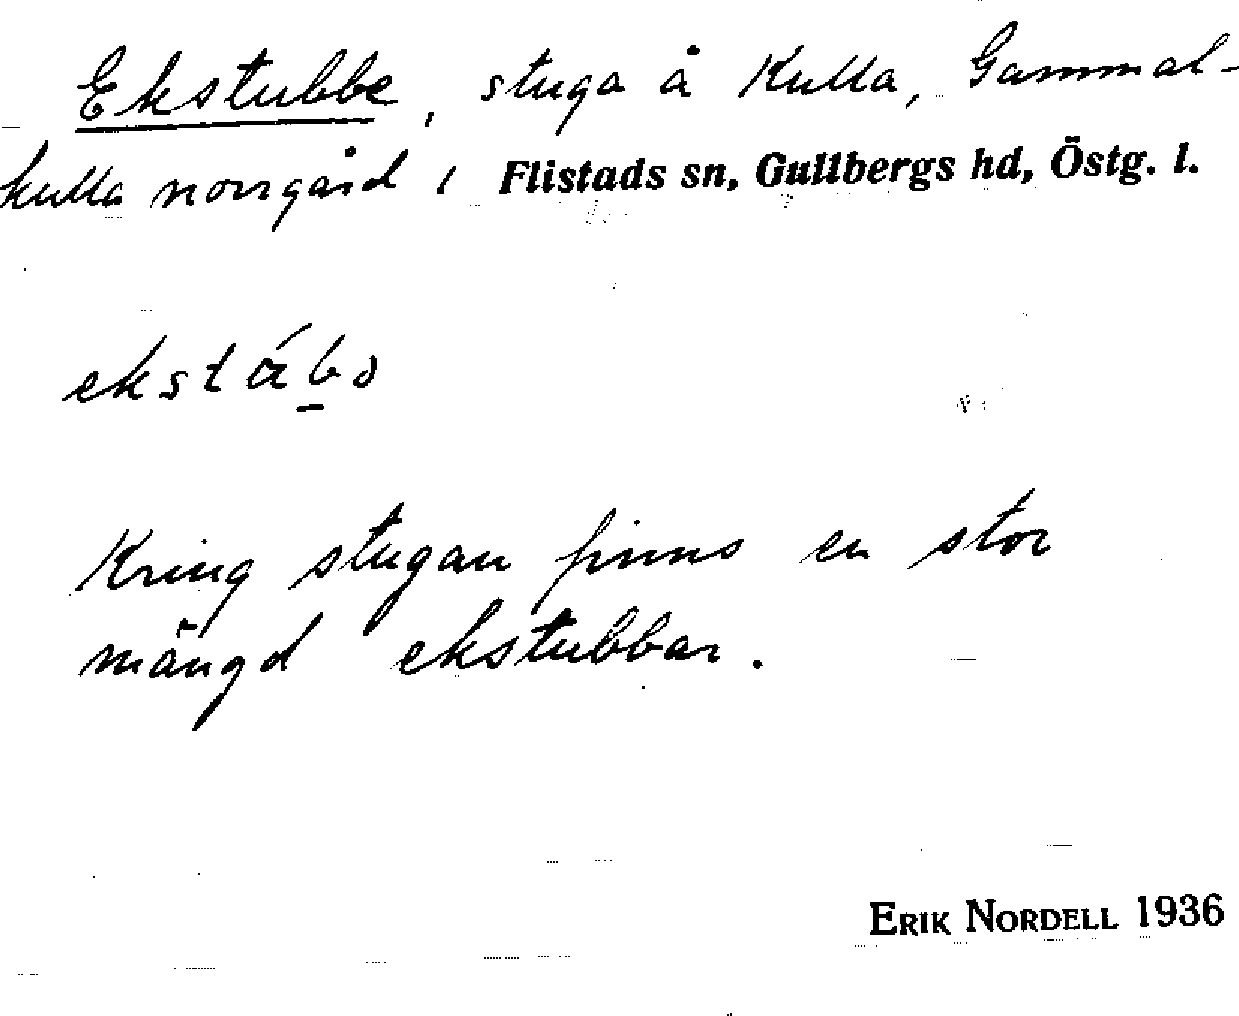 Ekstubbe, stuga å Kulla, Gammal-
kulla norrgård i Flistads sn, Gullbergs hd, Östg. l.
Kring stugan finns en stor
mängd ekstubbar.
ERIK NORDELL 1936